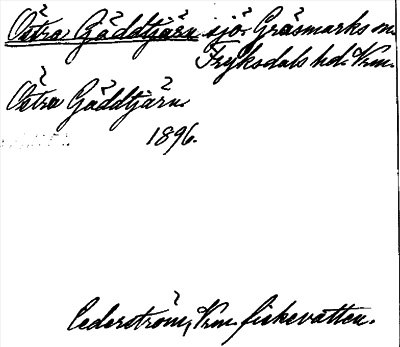 Östra Gäddtjärn. sjö. Gräsmarks sn.
Fryksdals hd. Vrm.
Östra Gäddtjärn.
1896.
Cederström, Vrm. fiskevatten.